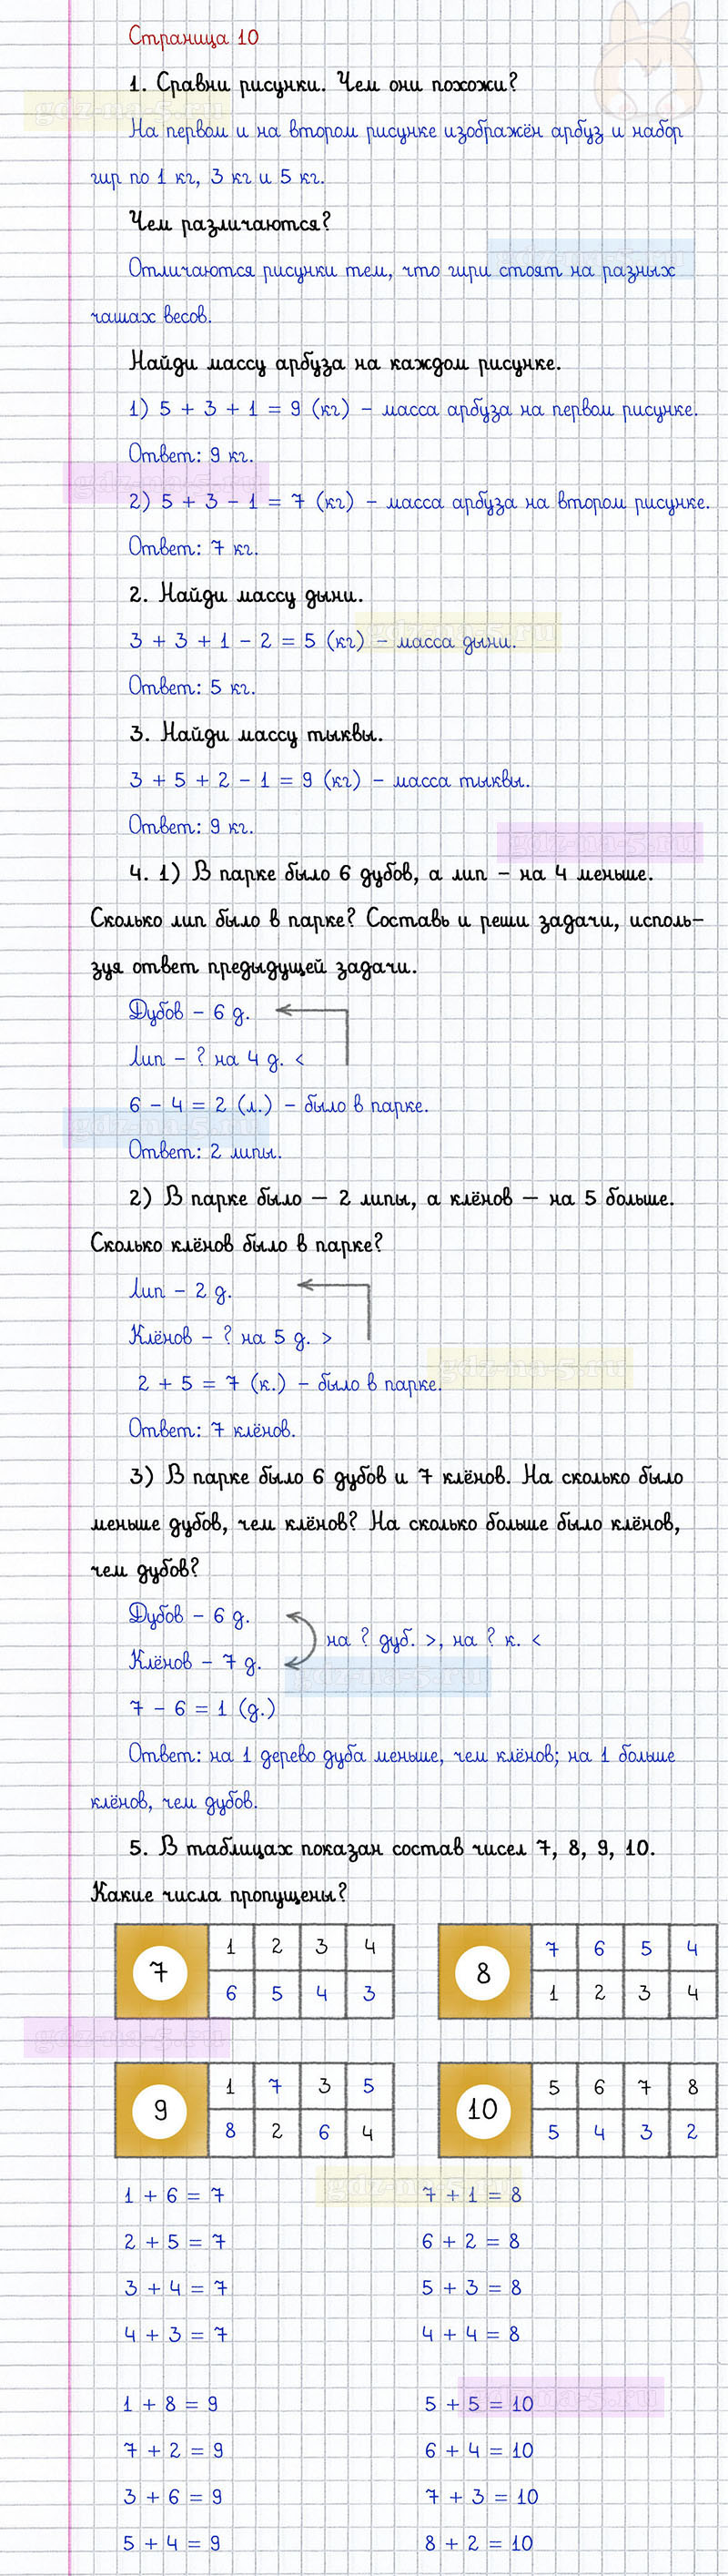 Страница 10
1. Сравни рисунки. Чем они похожи?
gdz-na-5.ru
На первом и на втором рисунке изображён арбуз и набор
гир по 1 кг, 3 кг и 5 кг.
Чем различаются?
gdz-na-5.ru
Отличаются рисунки тем, что гири стоят на разных
чашах весов.
Найди массу арбуза на каждом рисунке.
1) 5 + 3 + 1 = 9 (кг) – масса арбуза на первом рисунке.
Ответ: 9 кг.
gdz-na-5.ru
2) 5 + 3 – 1 = 7 (кг) – масса арбуза на втором рисунке.
Ответ: 7 кг.
2. Найди массу дыни.
gdz-na-5.ru
3 + 3 + 1 – 2 = 5 (кг) – масса дыни.
Ответ: 5 кг.
3. Найди массу тыквы.
3 + 5 + 2 – 1 = 9 (кг) – масса тыквы.
Ответ: 9 кг.
gdz-na-5.ru
4. 1) В парке было 6 дубов, а лип – на 4 меньше.
Сколько лип было в парке? Составь и реши задачи, исполь–
зуя ответ предыдущей задачи.
Дубов – 6 д.
Лип – ? на 4 д. <
6 – 4 = 2 (л.) – было в парке.
gdz-na-5.ru
Ответ: 2 липы.
2) В парке было — 2 липы, а клёнов — на 5 больше.
Сколько клёнов было в парке?
Лип – 2 д.
Клёнов – ? на 5 д. >
gdz-na-5.ru
2 + 5 = 7 (к.) – было в парке.
Ответ: 7 клёнов.
3) В парке было 6 дубов и 7 клёнов. На сколько было
меньше дубов, чем клёнов? На сколько больше было клёнов,
чем дубов?
Дубов – 6 д.
на ? дуб. >, на ? к. <
Клёнов – 7 д.
gdz-na-5.ru
7 – 6 = 1 (д.)
Ответ: на 1 дерево дуба меньше, чем клёнов; на 1 больше
клёнов, чем дубов.
5. В таблицах показан состав чисел 7, 8, 9, 10.
Какие числа пропущены?
7 1 2 3 4
6 5 4 3
8 7 6 5 4
1 2 3 4
gdz-na-5.ru
9 1 7 3 5
8 2 6 4
10 5 6 7 8
5 4 3 2
gdz-na-5.ru
1 + 6 = 7 7 + 1 = 8
2 + 5 = 7 6 + 2 = 8
3 + 4 = 7 5 + 3 = 8
4 + 3 = 7 4 + 4 = 8
gdz-na-5.ru
1 + 8 = 9 5 + 5 = 10
7 + 2 = 9 6 + 4 = 10
3 + 6 = 9 7 + 3 = 10
5 + 4 = 9 8 + 2 = 10